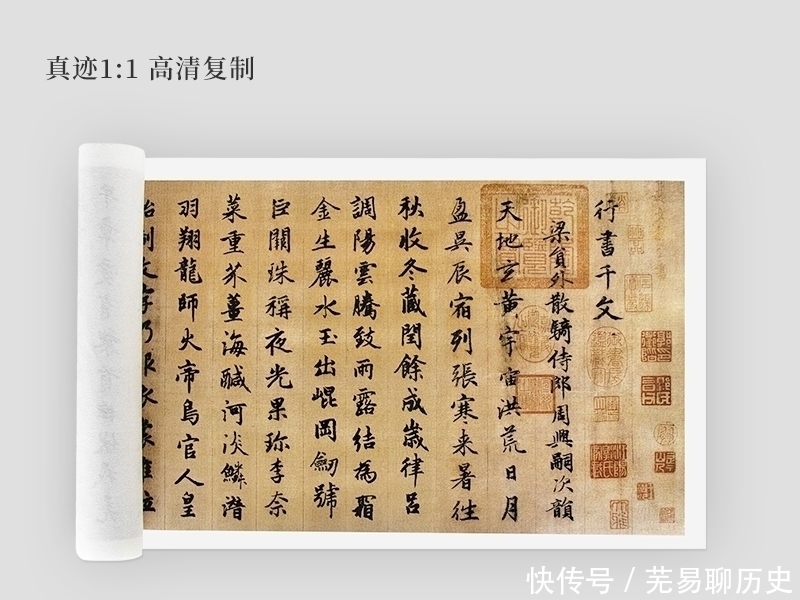 真迹1:1 高清复制
行書千文
梁員外散騎侍郎周興嗣次韻
天地玄黃宇宙洪荒日月
盈昃辰宿列張寒来暑徃
秋收冬藏閏餘成歲律呂
調陽雲騰致雨露結為霜
金生麗水玉出崐岡劒號
巨闕珠稱夜光果珍李柰
菜重芥薑海醎河淡鱗潛
羽翔龍師火帝鳥官人皇
始制文字乃服衣裳推位
快传号 / 芜易聊历史